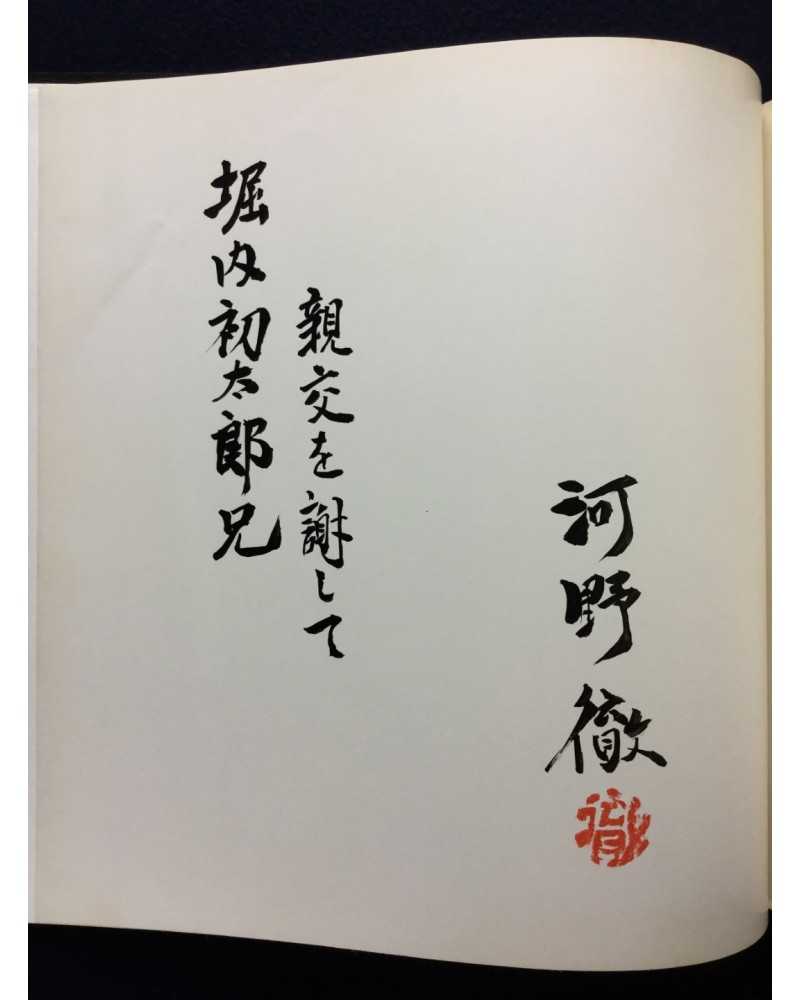 河野徹
徹
親交を謝して
堀内初太郎兄